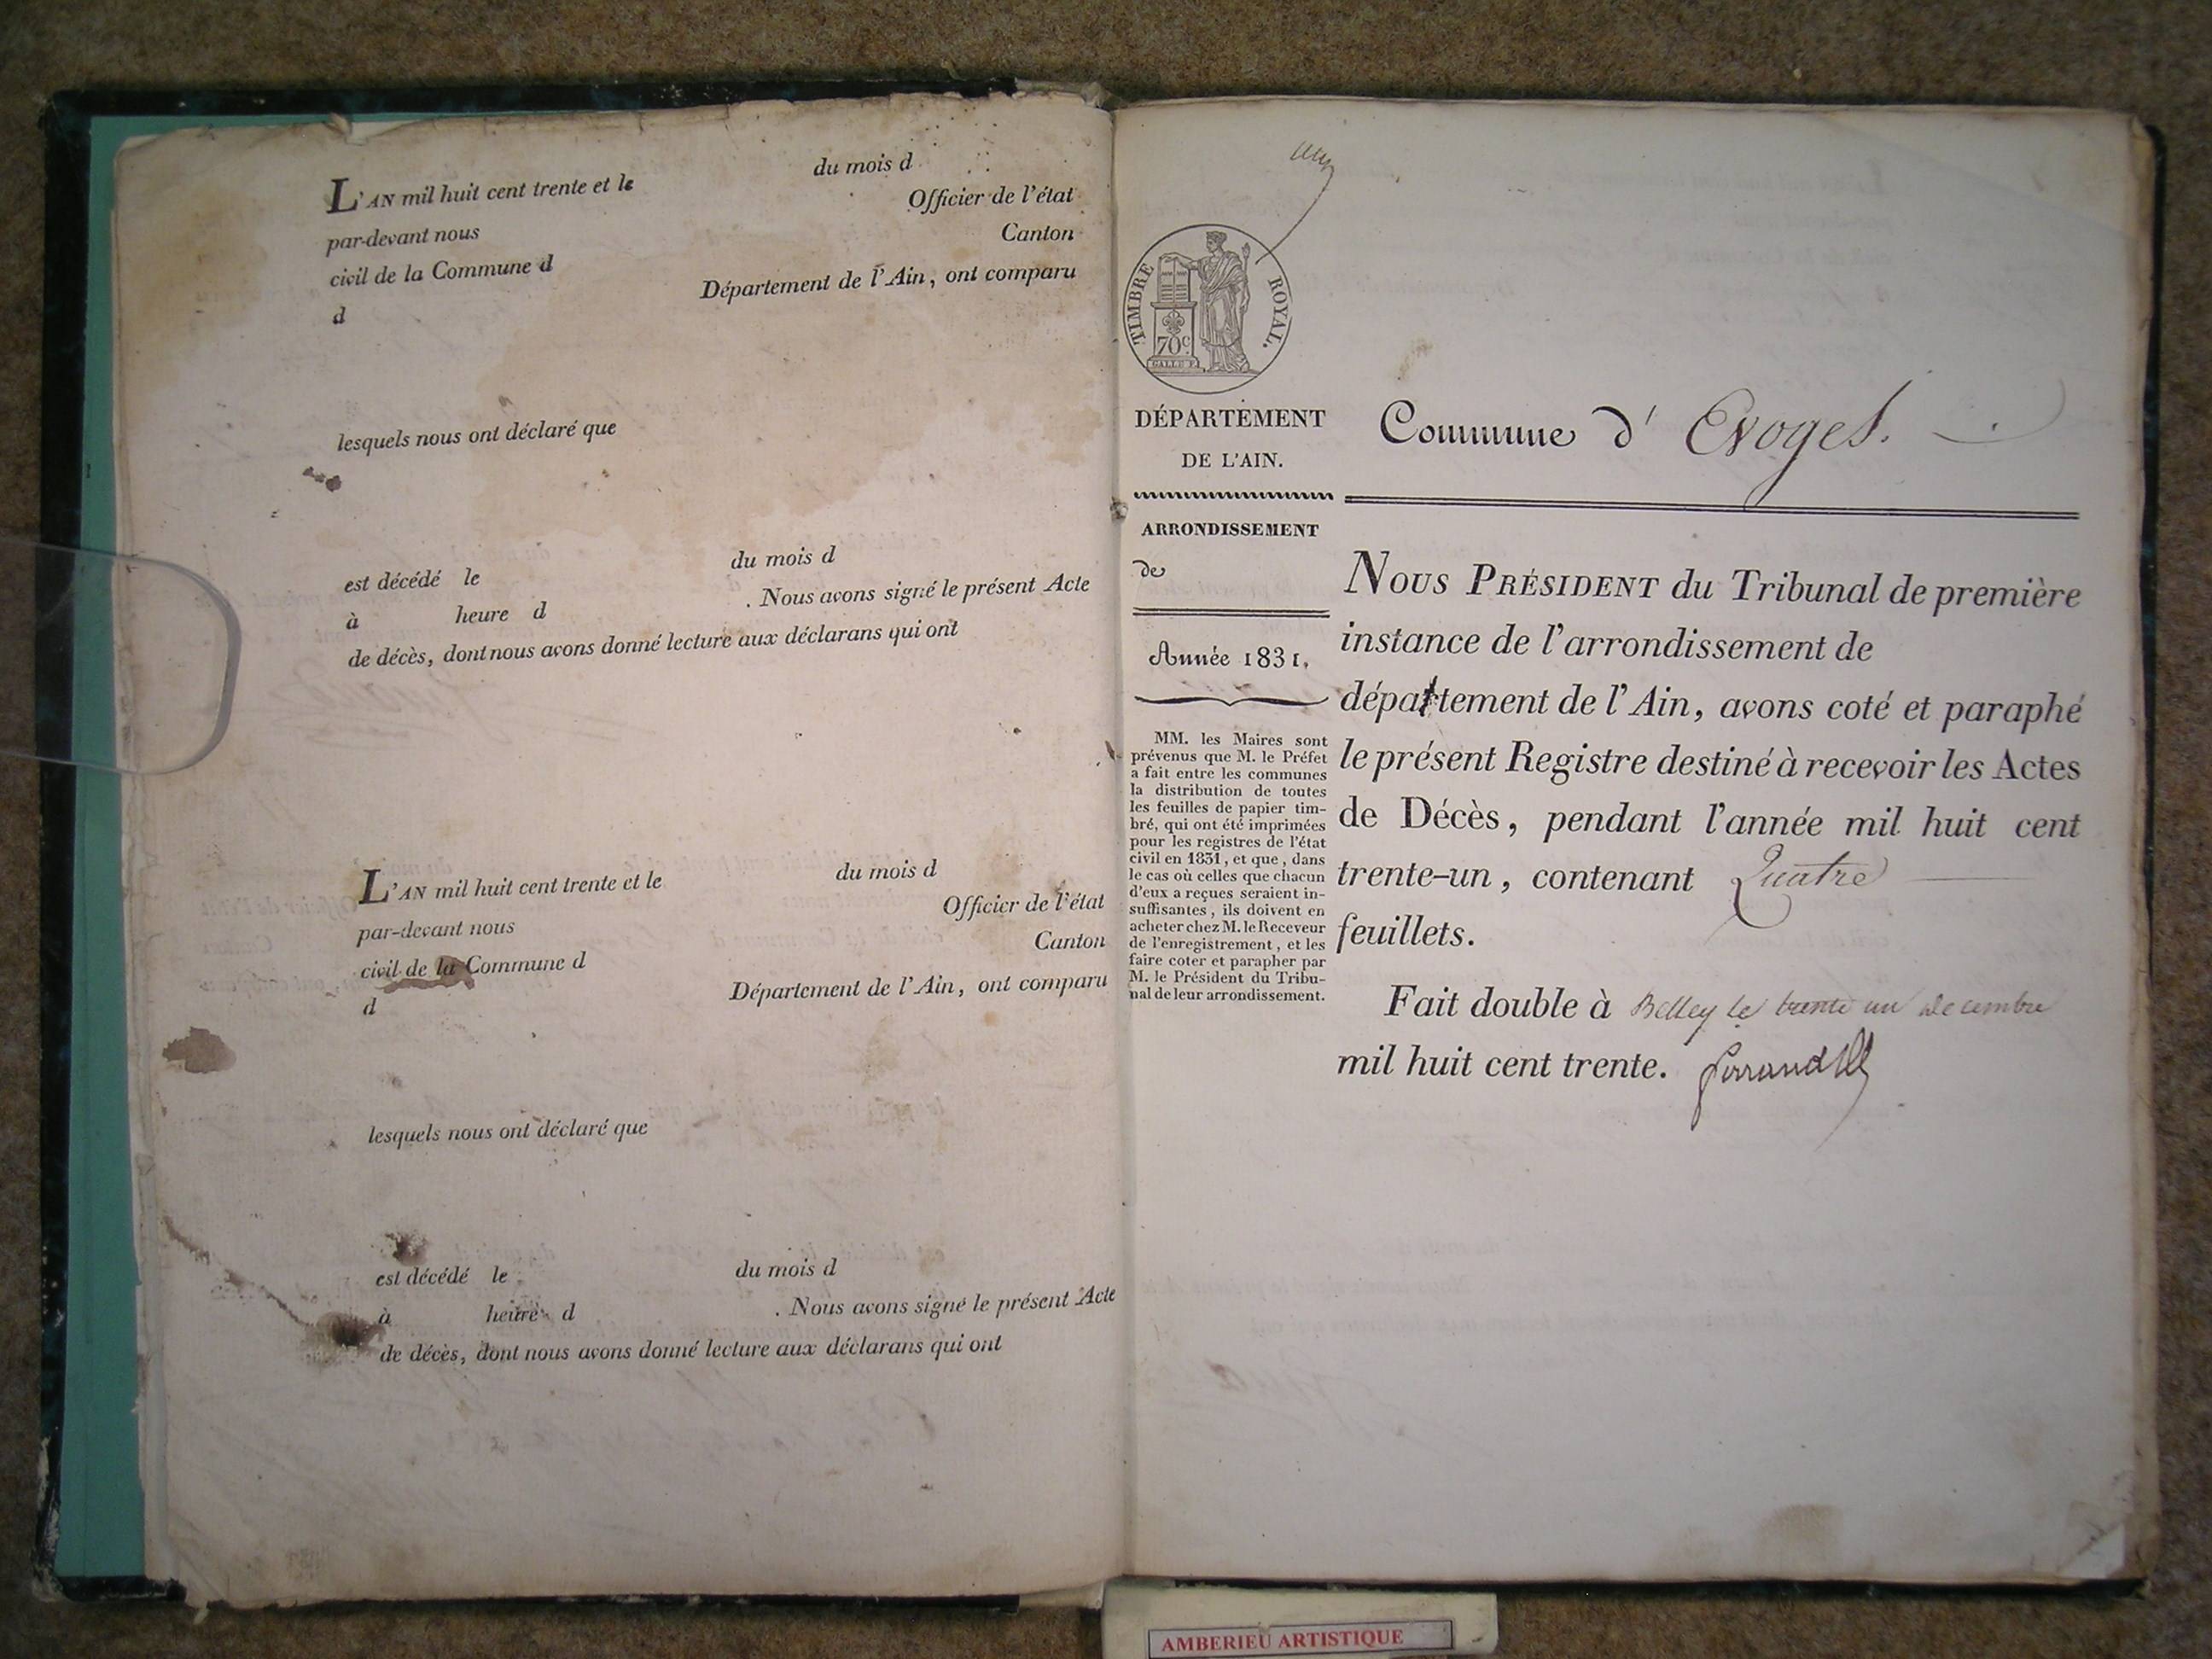 L'AN mil huit cent trente et le
du mois d
par-devant nous
Officier de l'état
civil de la Commune d
Canton
d
Département de l'Ain, ont comparu
lesquels nous ont déclaré que
est décédé le
du mois d
à heure d
. Nous avons signé le présent Acte
de décès, dont nous avons donné lecture aux déclarans qui ont
L'AN mil huit cent trente et le
du mois d
par-devant nous
Officier de l'état
civil de la Commune d
Canton
d
Département de l'Ain, ont comparu
lesquels nous ont déclaré que
est décédé le
du mois d
à heure d
. Nous avons signé le présent Acte
de décès, dont nous avons donné lecture aux déclarans qui ont
TIMBRE ROYAL.
70c
DÉPARTEMENT
DE L'AIN.
ARRONDISSEMENT
de
Année 1831.
MM. les Maires sont
prévenus que M. le Préfet
a fait entre les communes
la distribution de toutes
les feuilles de papier tim-
bré, qui ont été imprimées
pour les registres de l'état
civil en 1831, et que, dans
le cas où celles que chacun
d'eux a reçues seraient in-
suffisantes, ils doivent en
acheter chez M. le Receveur
de l'enregistrement, et les
faire coter et parapher par
M. le Président du Tribu-
nal de leur arrondissement.
Commune d' Evoges.
NOUS PRÉSIDENT du Tribunal de première
instance de l'arrondissement de
département de l'Ain, avons coté et paraphé
le présent Registre destiné à recevoir les Actes
de Décès, pendant l'année mil huit cent
trente-un, contenant Quatre
feuillets.
Fait double à Belley le trente un decembre
mil huit cent trente.
AMBERIEU ARTISTIQUE